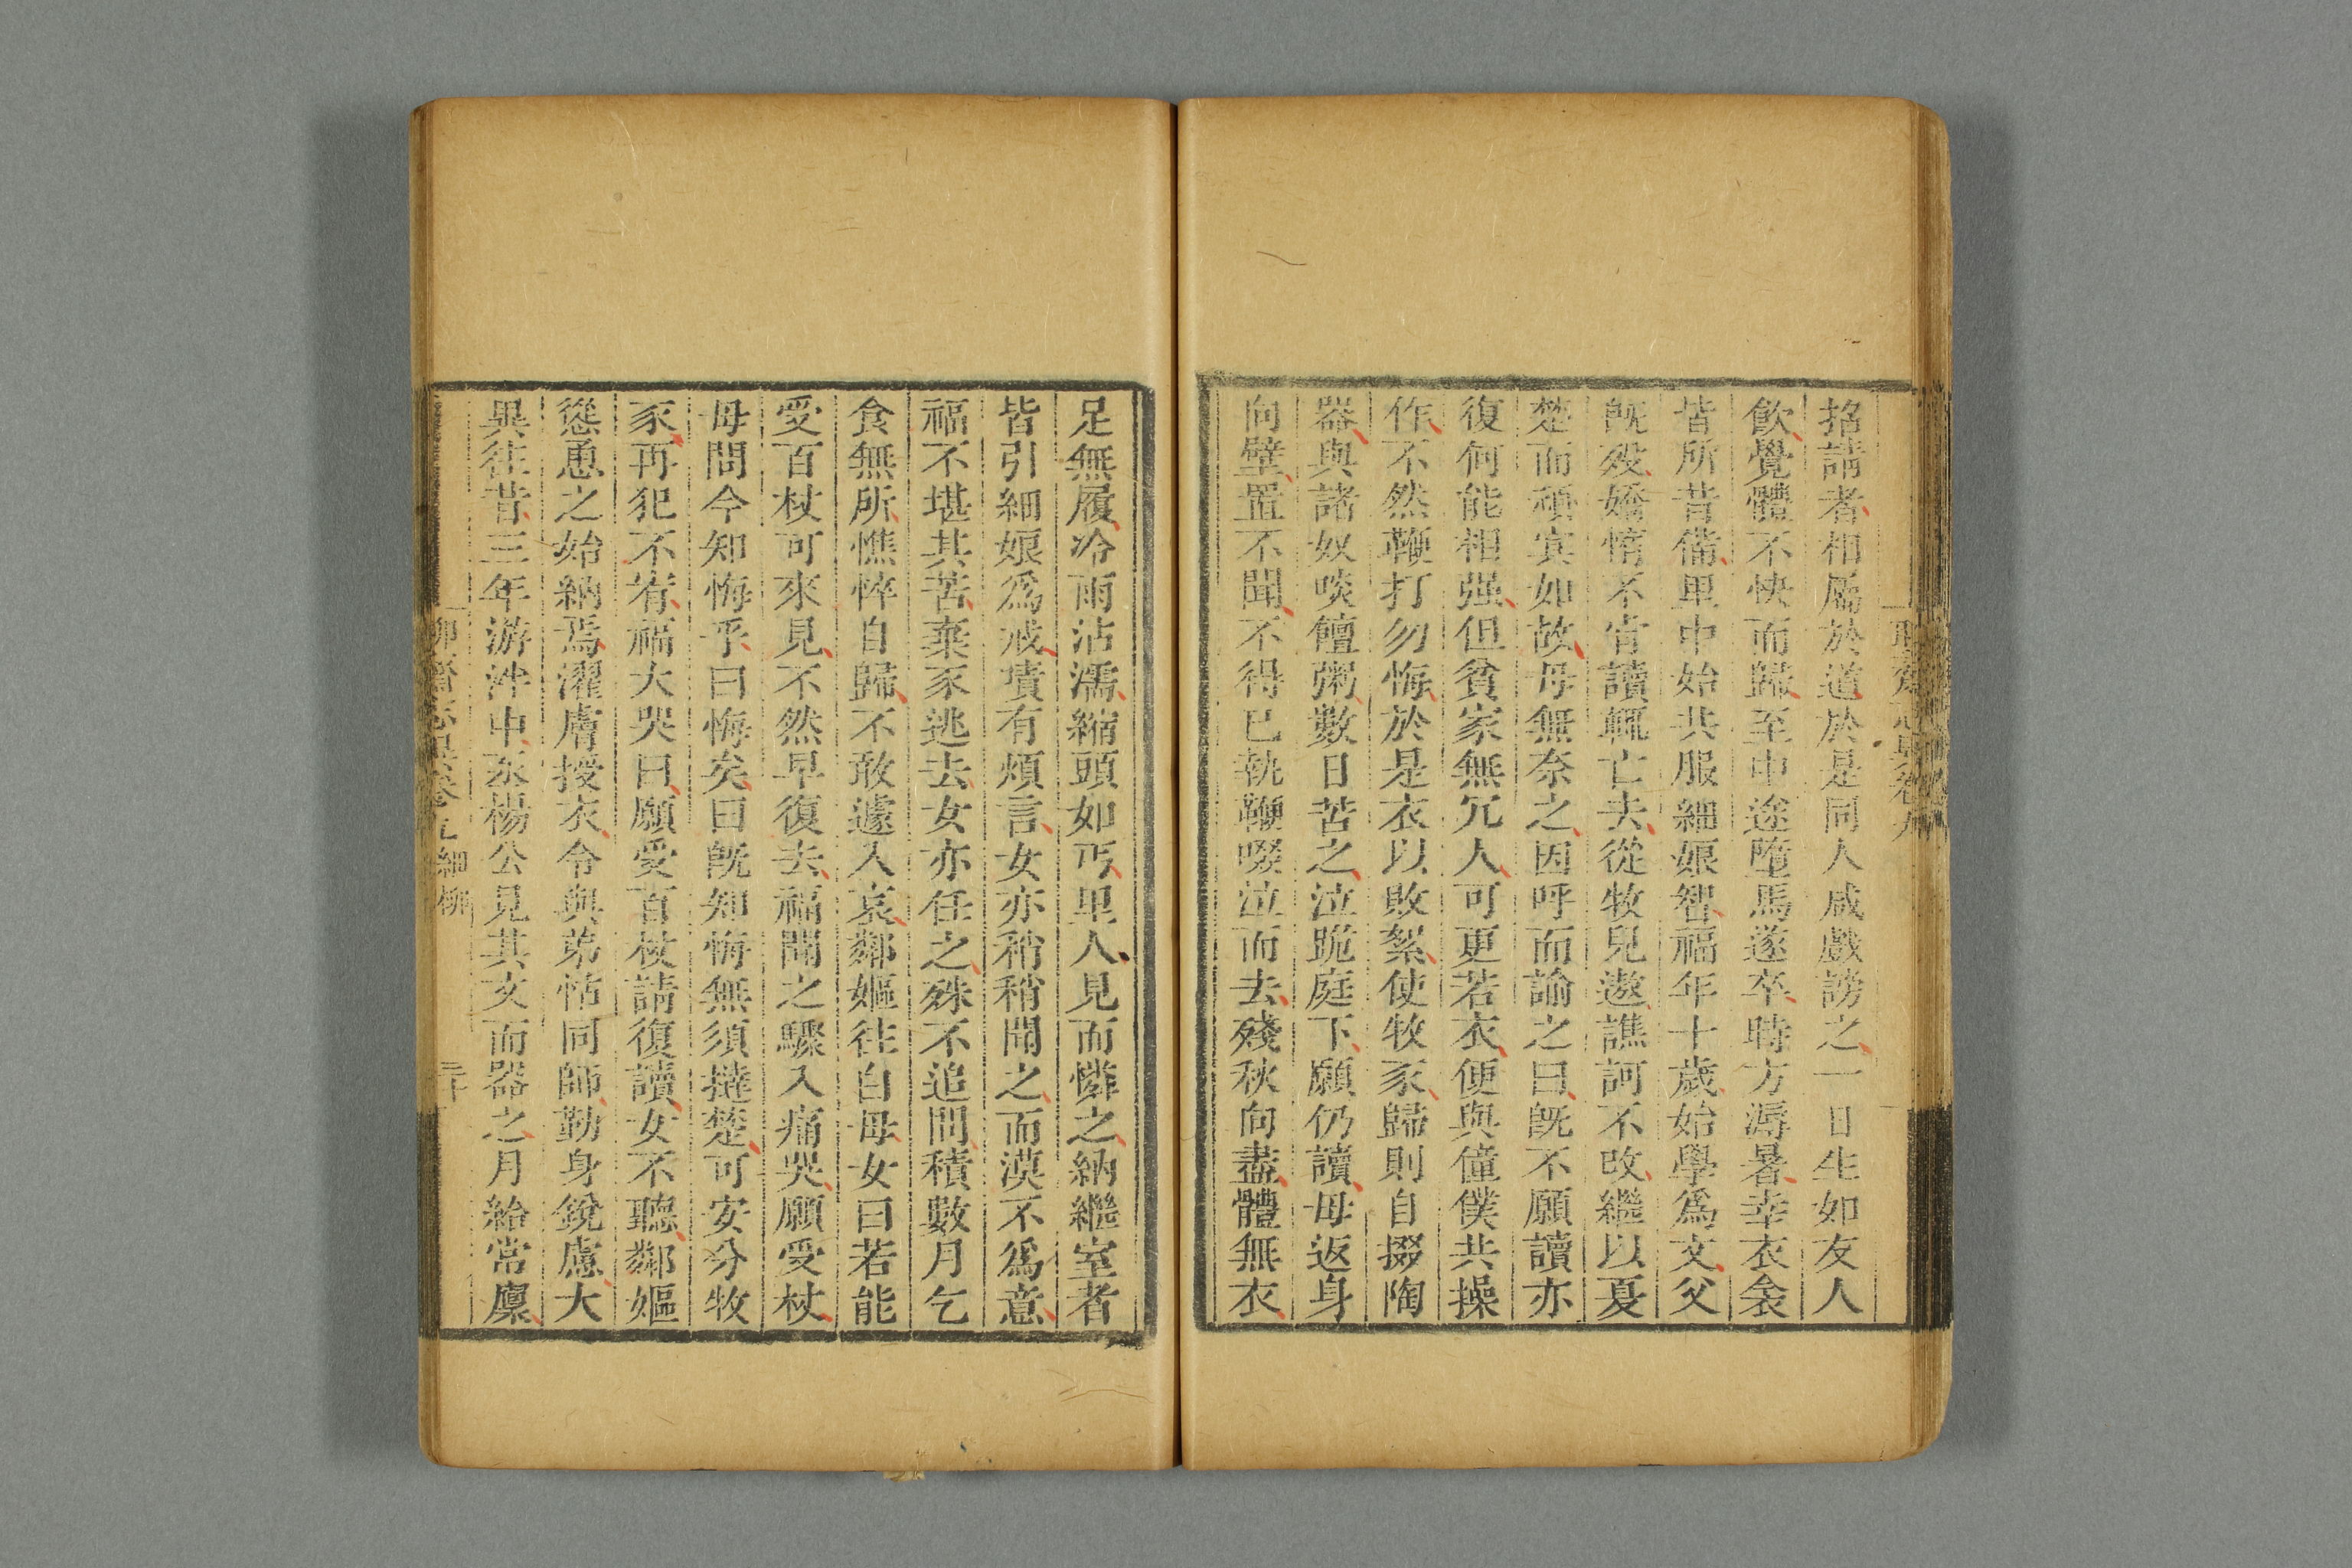 聊齋志異卷九
招請者相屬於道於是同人咸戲謗之一日生如友人
飲覺體不快而歸至中途墮馬遂卒時方溽暑幸衣衾
皆所昔備里中始共服細娘智福年十歲始學爲文父
旣歿嬌惰不肯讀輒亡去從牧兒遨譙訶不改繼以夏
楚而頑冥如故母無奈之因呼而諭之曰旣不願讀亦
復何能相强但貧家無冗人可更若衣便與僮僕共操
作不然鞭打勿悔於是衣以敗絮使牧豕歸則自掇陶
器與諸奴啖饘粥數日苦之泣跪庭下願仍讀母返身
向壁置不聞不得已執鞭啜泣而去殘秋向盡體無衣
足無履冷雨沾濡縮頭如丐里人見而憐之納繼室者
皆引細娘爲戒嘖有煩言女亦稍稍聞之而漠不爲意
福不堪其苦棄豕逃去女亦任之殊不追問積數月乞
食無所憔悴自歸不敢遽入哀鄰嫗往白母女曰若能
受百杖可來見不然早復去福聞之驟入痛哭願受杖
母問今知悔乎曰悔矣曰旣知悔無須撻楚可安分牧
豕再犯不宥福大哭曰願受百杖請復讀女不聽鄰嫗
慫恿之始納焉濯膚授衣令與弟怙同師勤身銳慮大
異往昔三年游泮中丞楊公見其文而器之月給常廩
聊齋志異卷九 細柳 二十